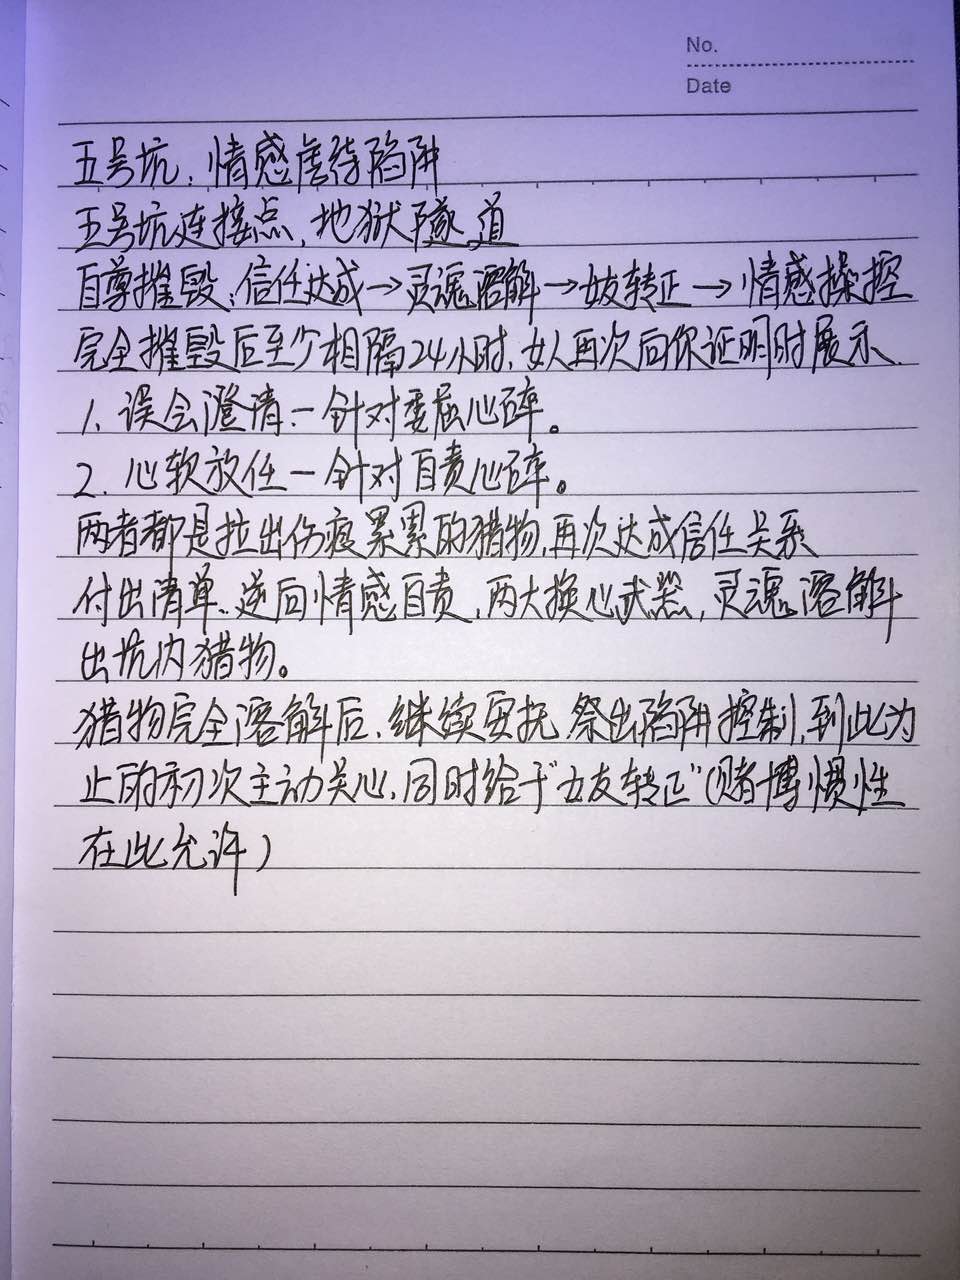 No.
Date
五号坑:情感虐待陷阱
五号坑连接点,地狱隧道
自尊摧毁:信任达成→灵魂溶解→女友转正→情感操控
完全摧毁后至少相隔24小时,女人再次向你证明时展示
1、误会澄清—针对委屈心碎。
2、心软放任—针对自责心碎。
两者都是拉出伤痕累累的猎物,再次达成信任关系
付出清单、逆向情感自责,两大换心武器,灵魂溶解
出坑内猎物。
猎物完全溶解后,继续安抚 祭出陷阱控制,到此为
止的初次主动关心,同时给于“女友转正”(赌博惯性
在此允许)